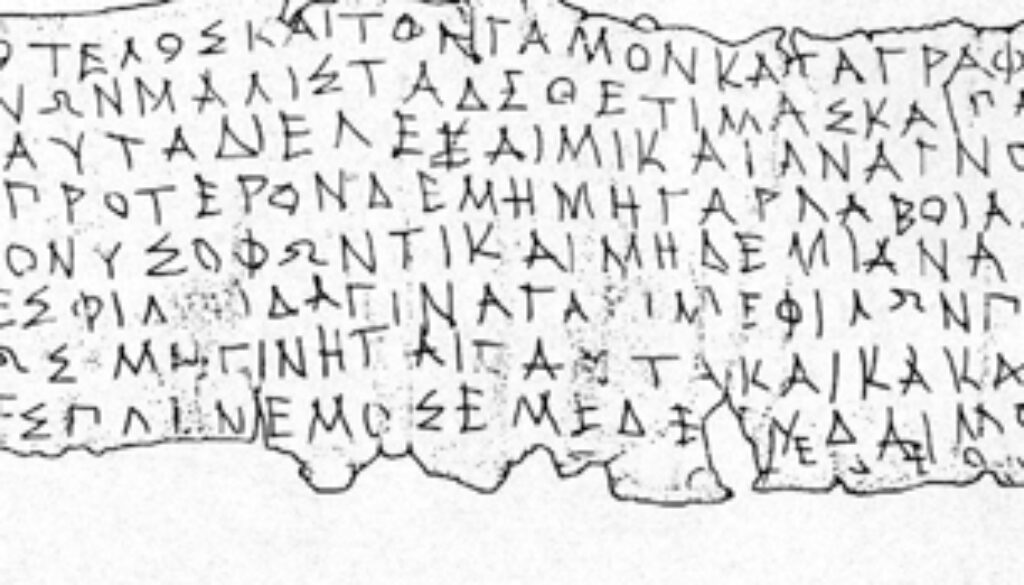 ΟΤΕΛΟΣΚΑΙΤΟΝΓΑΜΟΝΚΑΤΑΓΡΑΦ
ΝΩΝΜΑΛΙΣΤΑΔΣΘΕΤΙΜΑΣΚΑΙΠΑ
ΑΥΤΑΔΙΕΛΕΞΑΙΜΙΚΑΙΑΝΑΓΝΟ
ΠΡΟΤΕΡΟΝΔΕΜΗΜΗΓΑΡΛΑΒΟΙΑ
ΟΝΥΣΟΦΩΝΤΙΚΑΙΜΗΔΕΜΙΑΝΑ
ΕΣΦΙΛ ΙΔΑΓΙΝΑΓΑ ΙΜΕΦΙΛΩΝΠ
ΩΣΜΗΓΙΝΗΤΑΙΤΑΥΤΑΚΑΙΚΑΚΑ
ΕΣΠΛΙΝΕΜΟΣΕΜΕΔΕ ΥΕΔΑΙΜΟ